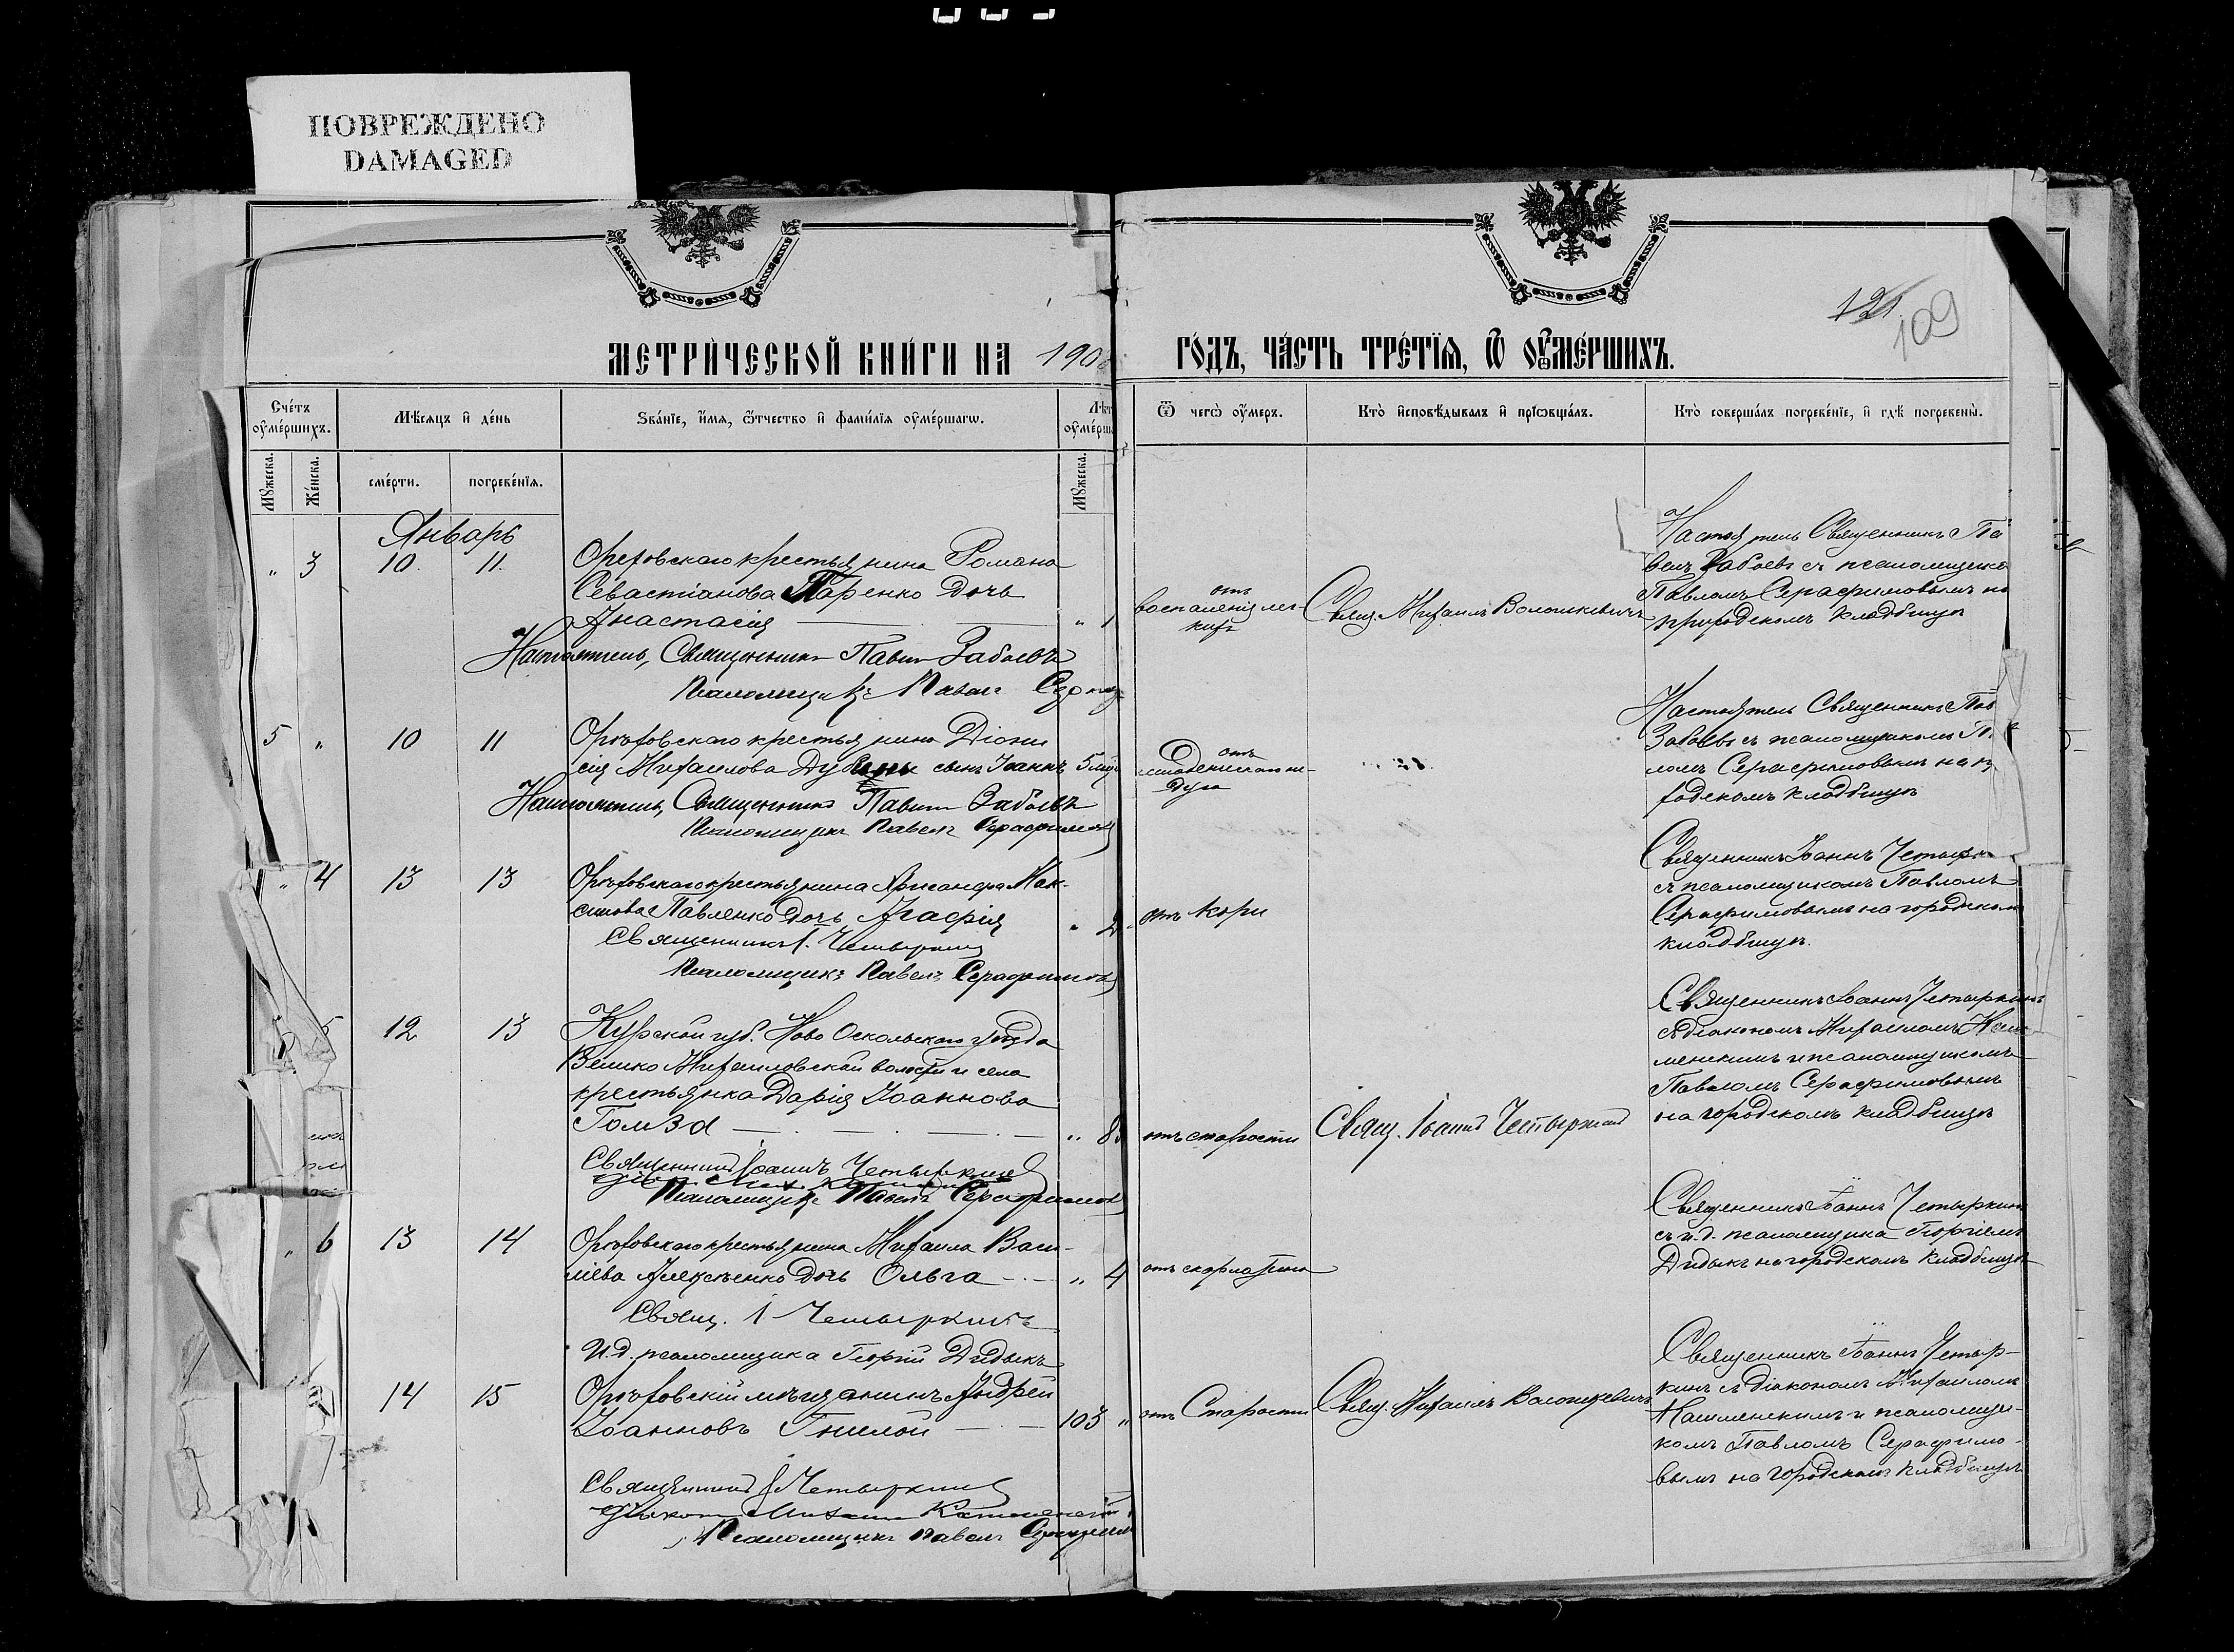 ПОВРЕЖДЕНО
DAMAGED
121
109
МЕТРИ́ЧЕСКОЙ КНИ́ГИ НА 190
ГО́ДЪ, ЧА́СТЬ ТРЕ́ТЇѦ, Ѡ ОУ҆МЕ́РШИХЪ.
Сче́тъ оу҆ме́ршихъ.
Мѣ́сѧцъ и҆ де́нь
Ѕва́нїе, и҆́мѧ, ѻ҆́тчество и҆ фами́лїѧ оу҆ме́ршагѡ.
Мꙋ́жеска.
Же́нска.
сме́рти.
погребе́нїѧ.
Мꙋ́жеска.
Ѿ чегѡ̀ оу҆́меръ.
Кто̀ и҆сповѣ́дывалъ и҆ прїѡбща́лъ.
Кто̀ соверша́лъ погребе́нїе, и҆ гдѣ̀ погребены̀.
Январь
" 3 10. 11. Орѣховскаго крестьянина Романа
Севастіанова Паренко дочь
Анастасія " 1
Настоятель, Священникъ Павелъ Забоевъ
Псаломщикъ Павелъ
отъ
воспаленія лег-
кихъ
Свящ. Михаилъ Волошкевичъ
Настоятель Священникъ Па
велъ Забоевъ съ псаломщико
Павломъ Серафимовымъ на
городскомъ кладбищѣ
5 " 10 11 Орѣховскаго крестьянина Діони
сія Михаилова сынъ Іоаннъ 5
Настоятель, Священникъ Павелъ Забоевъ
Псаломщикъ Павелъ Серафимовъ
отъ
младенческаго не-
дуга
Настоятель Священникъ Пав
Забоевъ съ псаломщикомъ П
ломъ Серафимовымъ на
родскомъ кладбищѣ
" 4 13 13 Орѣховскаго крестьянина Александра Мак-
симова Павленко дочь Агафія " 2
Священникъ І. Четыркинъ
Псаломщикъ Павелъ Серафимовъ
отъ кори
Священникъ Іоаннъ Четырк
съ псаломщикомъ Павломъ
Серафимовымъ на городском
кладбищѣ.
5 12 13 Курской губ. Ново Оскольскаго уѣзда
Велико Михайловской волости и села
крестьянка Дарія Іоаннова
Гомза " 8
Священникъ Іоаннъ Четыркинъ
Псаломщикъ Павелъ Серафимовъ
отъ старости
Свящ. Іоаннъ Четыркинъ
Священникъ Іоаннъ Четыркинъ
съ діакономъ Михаиломъ
менскимъ и псаломщикомъ
Павломъ Серафимовымъ
на городскомъ кладбищѣ
" 6 13 14 Орѣховскаго крестьянина Михаила Васи-
ліева Алексѣенко дочь Ольга " 4
Свящ. І Четыркинъ
И.д. псаломщика Георгій Дидыкъ
отъ скарлатины
Священникъ Іоаннъ Четыркинъ
съ и.д. псаломщика Георгіемъ
Дидыкъ на городскомъ кладбищѣ
14 15 Орѣховскій мѣщанинъ Андрей
Іоанновъ Гнилой 103 "
Священникъ І Четыркинъ
Діаконъ Михаилъ
Псаломщикъ Павелъ
отъ Старости
Свящ. Михаилъ Волошкевичъ
Священникъ Іоаннъ Четыр-
кинъ съ діакономъ Михаиломъ
и псаломщи-
комъ Павломъ Серафимо-
вымъ на городскомъ кладбищѣ